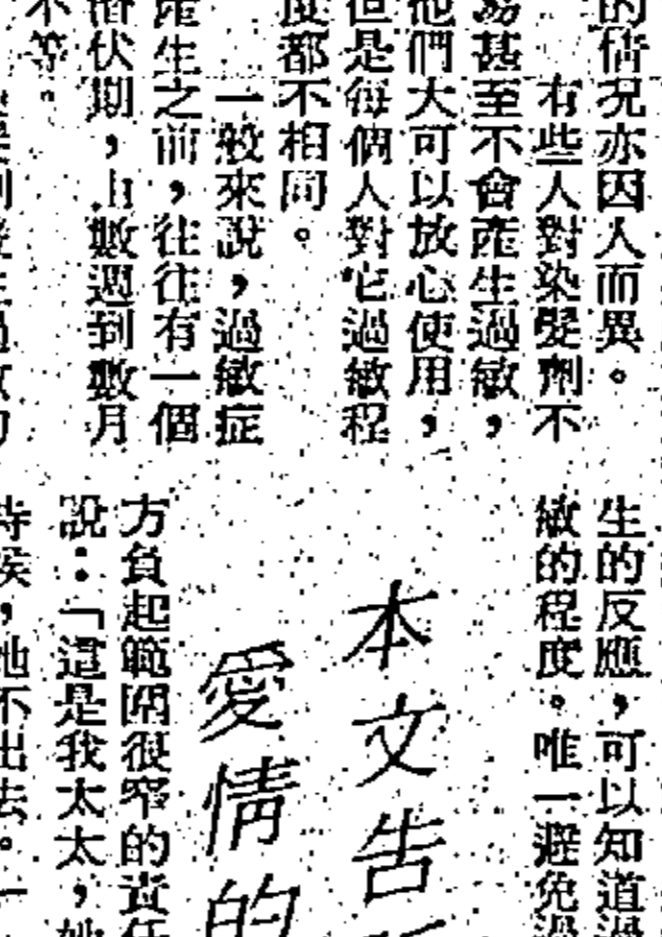 的情况亦因人而異。
有些人對染髮劑不
易甚至不會產生過敏，
他們大可以放心使用，
但是每個人對它過敏程
度都不相同。
一般來說，過敏症
產生之前，往往有一個
潛伏期，由數週到數月
不等。
生的反應，可以知道過
敏的程度。唯一避免過
本文告
愛情的
方負起範圍很窄的責任
說：「這是我太太，她
時候，她不出去。一